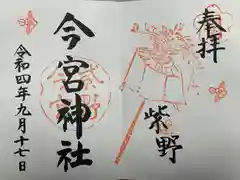 奉拝
紫野
今宮神社
令和四年九月十七日